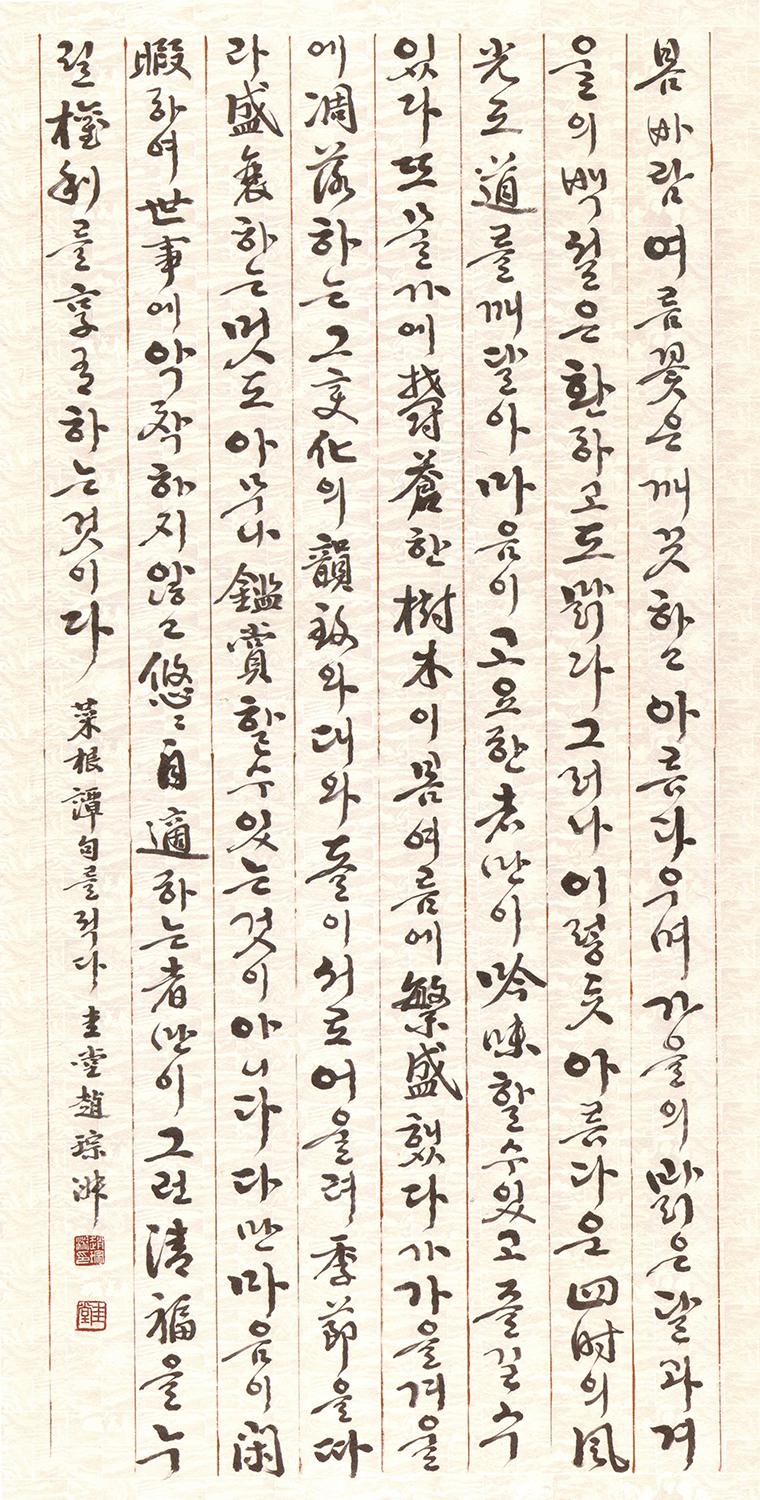 봄바람여름꽃은깨끗하고아름다우며가을의맑은달과겨
울의백설은환하고도맑다그러나이렇듯아름다운四時의風
光도道를깨달아마음이고요한者만이吟味할수있고즐길수
있다또뜰가에鬱蒼한樹木이봄여름에繁盛했다가가을겨울
에凋落하는그變化의韻致와대와돌이서로어울려季節을따
라盛衰하는멋도아무나鑑賞할수있는것이아니다다만마음이閑
暇하여世事에악착하지않고悠〻自適하는者만이그런清福을누
릴權利를享有하는것이다 菜根譚句를적다 圭堂趙琮
圭堂